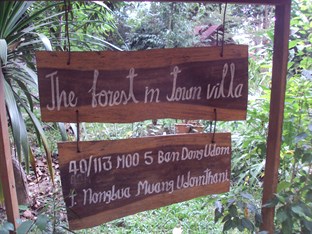 The forest in town villa
40/113 MOO 5 Ban Dong Udom
t. Nongbua Muang Udonthani